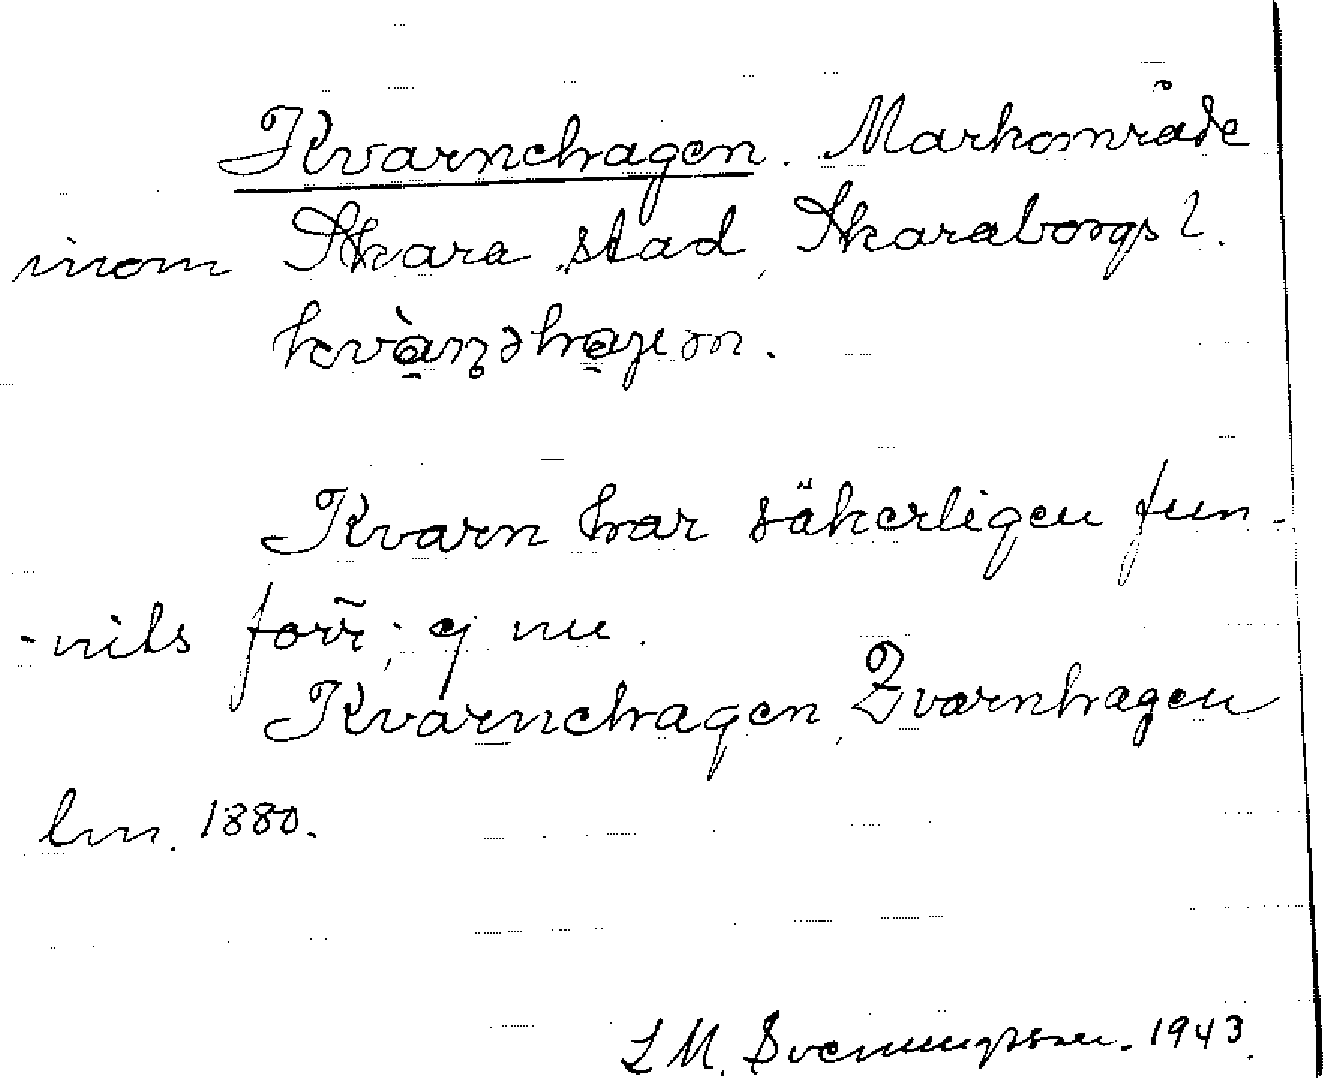 Kvarnehagen. Markområde
inom Skara stad, Skaraborgs l.
Kvarn har säkerligen fun-
-nits förr; ej nu.
Kvarnehagen, Qvarnhagen
lm. 1880.
L M. Svenungsson. 1943.